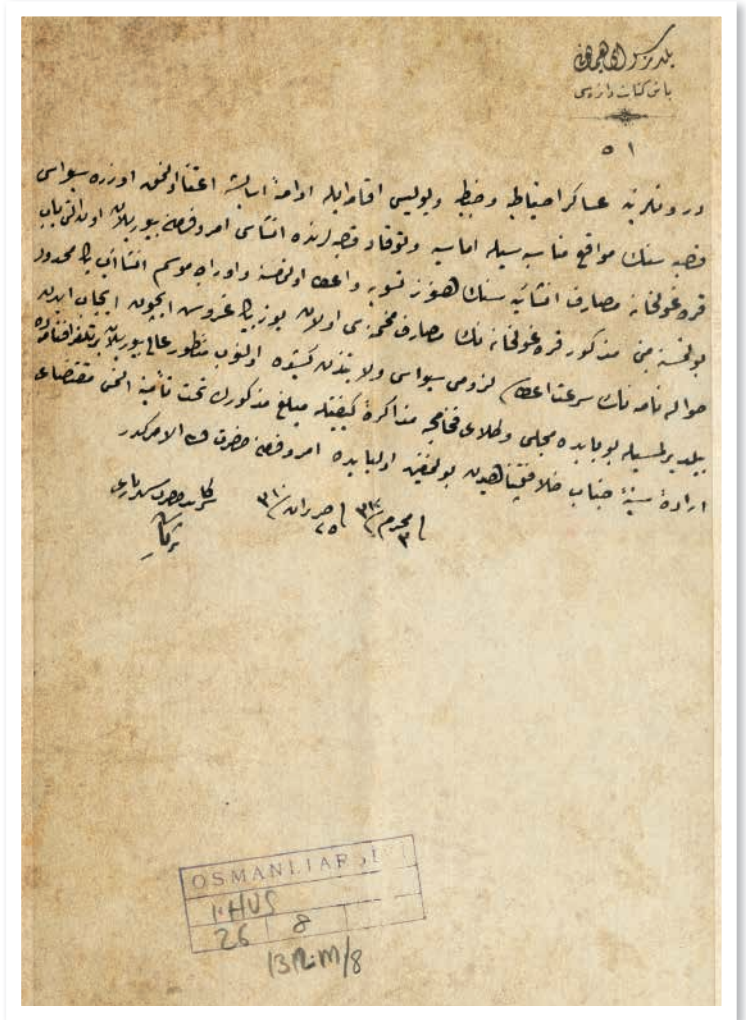 يلديز سراى همايونى
باش كتابت دائره سى
٥١
درونلرينه عساكر احتياطيه وضبطيه وپوليس اقامه ايله ادامۀ آسايشه اعتنا اولنمق اوزره سيواس
قصبه سنك مواقع مناسبه سيله اماسيه وتوقاد قصبه لرنده انشاسى امر وفرمان بيوريلان اون التى باب
قره غولخانه مصارف انشائيه سنك هنوز تسويه واعطا اولنمسنه واورالرجه موسم انشاآت پك محدود
بولنمسنه مبنى مذكور قره غولخانه لرك مصارف مخمنه سى اولان يوز بيك غروش ايچون ايجاب ايدن
حواله نامه نك سرعت اعطاسى لزومى سيواس ولايتندن كشيده اولنوب منظور عالى بيوريلان برتلغرافنامه ده
بيلديرلمسيله بو بابده مجلس وكلاى فخامجه مذاكرۀ كيفيتله مبلغ مذكورك تحت تأمينه النمسى مقتضاى
ارادۀ سنيۀ جناب خلافتپناهيدن بولنمش اولبابده امر وفرمان حضرت ولى الامركدر
فى ٣ محرم سنه ٣١٢ فى ٢٥ حزيران سنه ٣١٠
سركاتب حضرت شهريارى
ثريا
OSMANLI ARŞİVİ
Y..HUS
26 8
1312.M/8